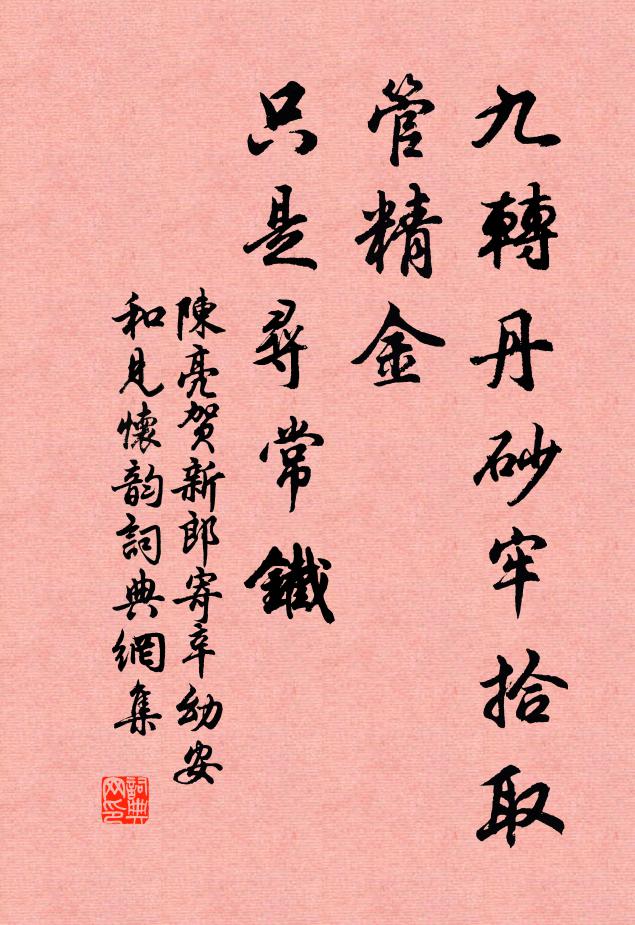 九轉丹砂牢拾取
管精金
只是尋常鐵
陳亮賀新郎寄辛幼安
和見懷韵詞典網集
詞典
网印